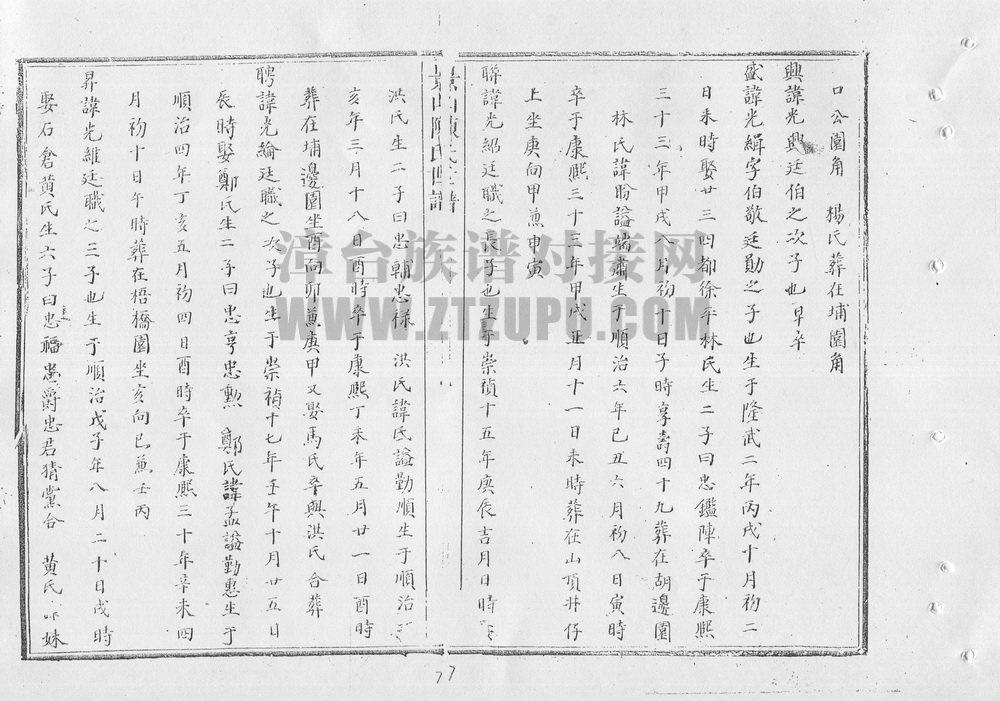 口公園角　楊氏葬在埔園角
興諱光興廷伯之次子也早卒
盛諱光緝字伯敬廷勛之子也生于隆武二年丙戌十月初二
日未時娶廿三四都徐平林氏生二子曰忠鑑陣卒于康熙
三十三年甲戌八月初十日子時享壽四十九葬在胡邊園
林氏諱盼謚端肅生于順治六年已丑六月初八日寅時
卒于康熙三十三年甲戌正月十一日未時葬在山頂井仔
上坐庚向甲兼申寅
聯諱光紹廷職之長子也生于崇禎十五年庚辰吉月日時
洪氏生二子曰忠輔忠禄　洪氏諱氐謚勤順生于順治
亥年三月十八日酉時卒于康熙丁未年五月廿一日酉時
葬在埔邊園坐酉向卯兼庚甲又娶馬氏卒與洪氏合葬
聘諱光綸廷職之次子也生于崇禎十七年壬午十月廿五日
辰時娶鄭氏生二子曰忠亨忠勲　鄭氏諱孟謚勤惠生于
順治四年丁亥五月初四日酉時卒于康熙三十年辛未四
月初十日午時葬在梧橋園坐亥向已兼壬丙
昇諱光維廷職之三子也生于順治戊子年八月二十日戌時
娶石倉黃氏生六子曰忠福忠爵忠君猜黨合　黃氏　妹
77
漳台族谱对接网
WWW.ZTZUPU.COM